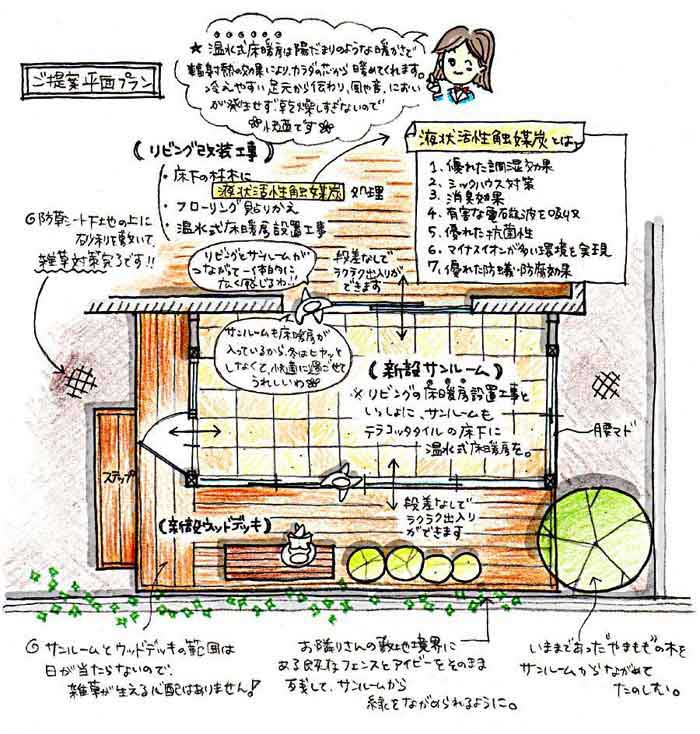 ご提案平面プラン
★温水式床暖房は陽だまりのような暖かさで
輻射熱の効果により、カラダの芯から暖めてくれます。
冷えやすい足元から伝わり、風や音、におい
が発生せず乾燥しすぎないので
快適です
(リビング改装工事)
・床下の材木に
液状活性触媒炭 処理
・フローリング貼りかえ
・温水式床暖房設置工事
液状活性触媒炭とは
1. 優れた調湿効果
2. シックハウス対策
3. 消臭効果
4. 有害な電磁波を吸収
5. 優れた抗菌性
6. マイナスイオンが多い環境を実現
7. 優れた防蟻・防腐効果
◎防草シート下地の上に
砂利を敷いて、
雑草対策完了です!!
リビングとサンルームが
つながって一体的に
広く感じるわ!!
段差なしで
ラクラク出入りが
できます
サンルームも床暖房が
入っているから、冬はヒヤッと
しなくて、快適に過ごせて
うれしいわ
(新設サンルーム)
※リビングの床暖房設置工事と
いっしょに、サンルームも
テラコッタタイルの床下に
温水式床暖房を。
腰マド
ステップ
(新設ウッドデッキ)
段差なしで
ラクラク出入り
ができます
◎サンルームとウッドデッキの範囲は
日が当たらないので、
雑草が生える心配はありません!
お隣りさんの敷地境界に
ある既存フェンスとアイビーをそのまま
残して、サンルームから
緑をながめられるように。
いままであった"やまもも"の木を
サンルームからながめて
たのしむ。